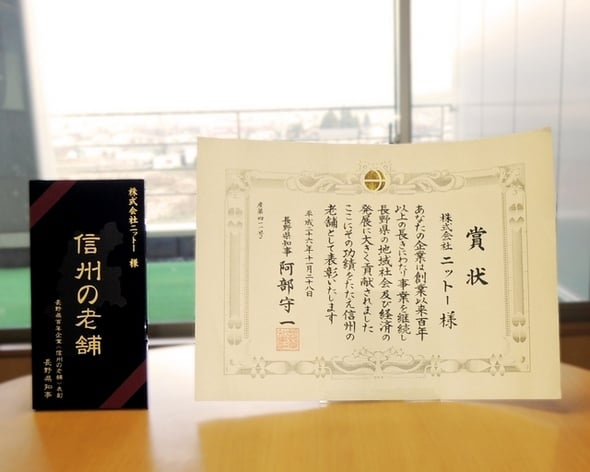 株式会社ニットー 様
信州の老舗
長野県百年企業〈信州の老舗〉表彰
長野県知事
賞状
株式会社ニットー様
あなたの企業は創業以来百年
以上の長きにわたり事業を継続し
長野県の地域社会及び経済の
発展に大きく貢献されました
ここにその功績をたたえ信州の
老舗として表彰いたします
平成二十六年十一月二十八日
長野県知事 阿部守一